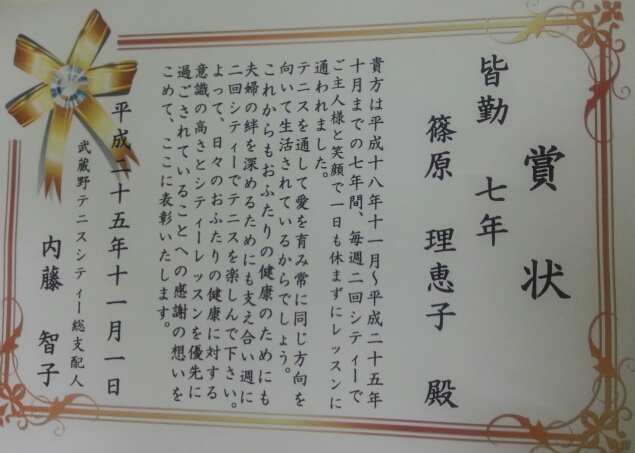 賞状
皆勤 七年
篠原 理恵子 殿
貴方は平成十八年十一月～平成二十五年
十月までの七年間、毎週二回シティーで
ご主人様と笑顔で一日も休まずにレッスンに
通われました。
テニスを通して愛を育み常に同じ方向を
向いて生活されているからでしょう。
これからもおふたりの健康のためにも
夫婦の絆を深めるためにも支え合い週に
二回シティーでテニスを楽しんで下さい。
よって、日々のおふたりの健康に対する
意識の高さとシティーレッスンを優先に
過ごされていることへの感謝の想いを
こめて、ここに表彰いたします。
平成二十五年十一月一日
武蔵野テニスシティー総支配人
内藤 智子